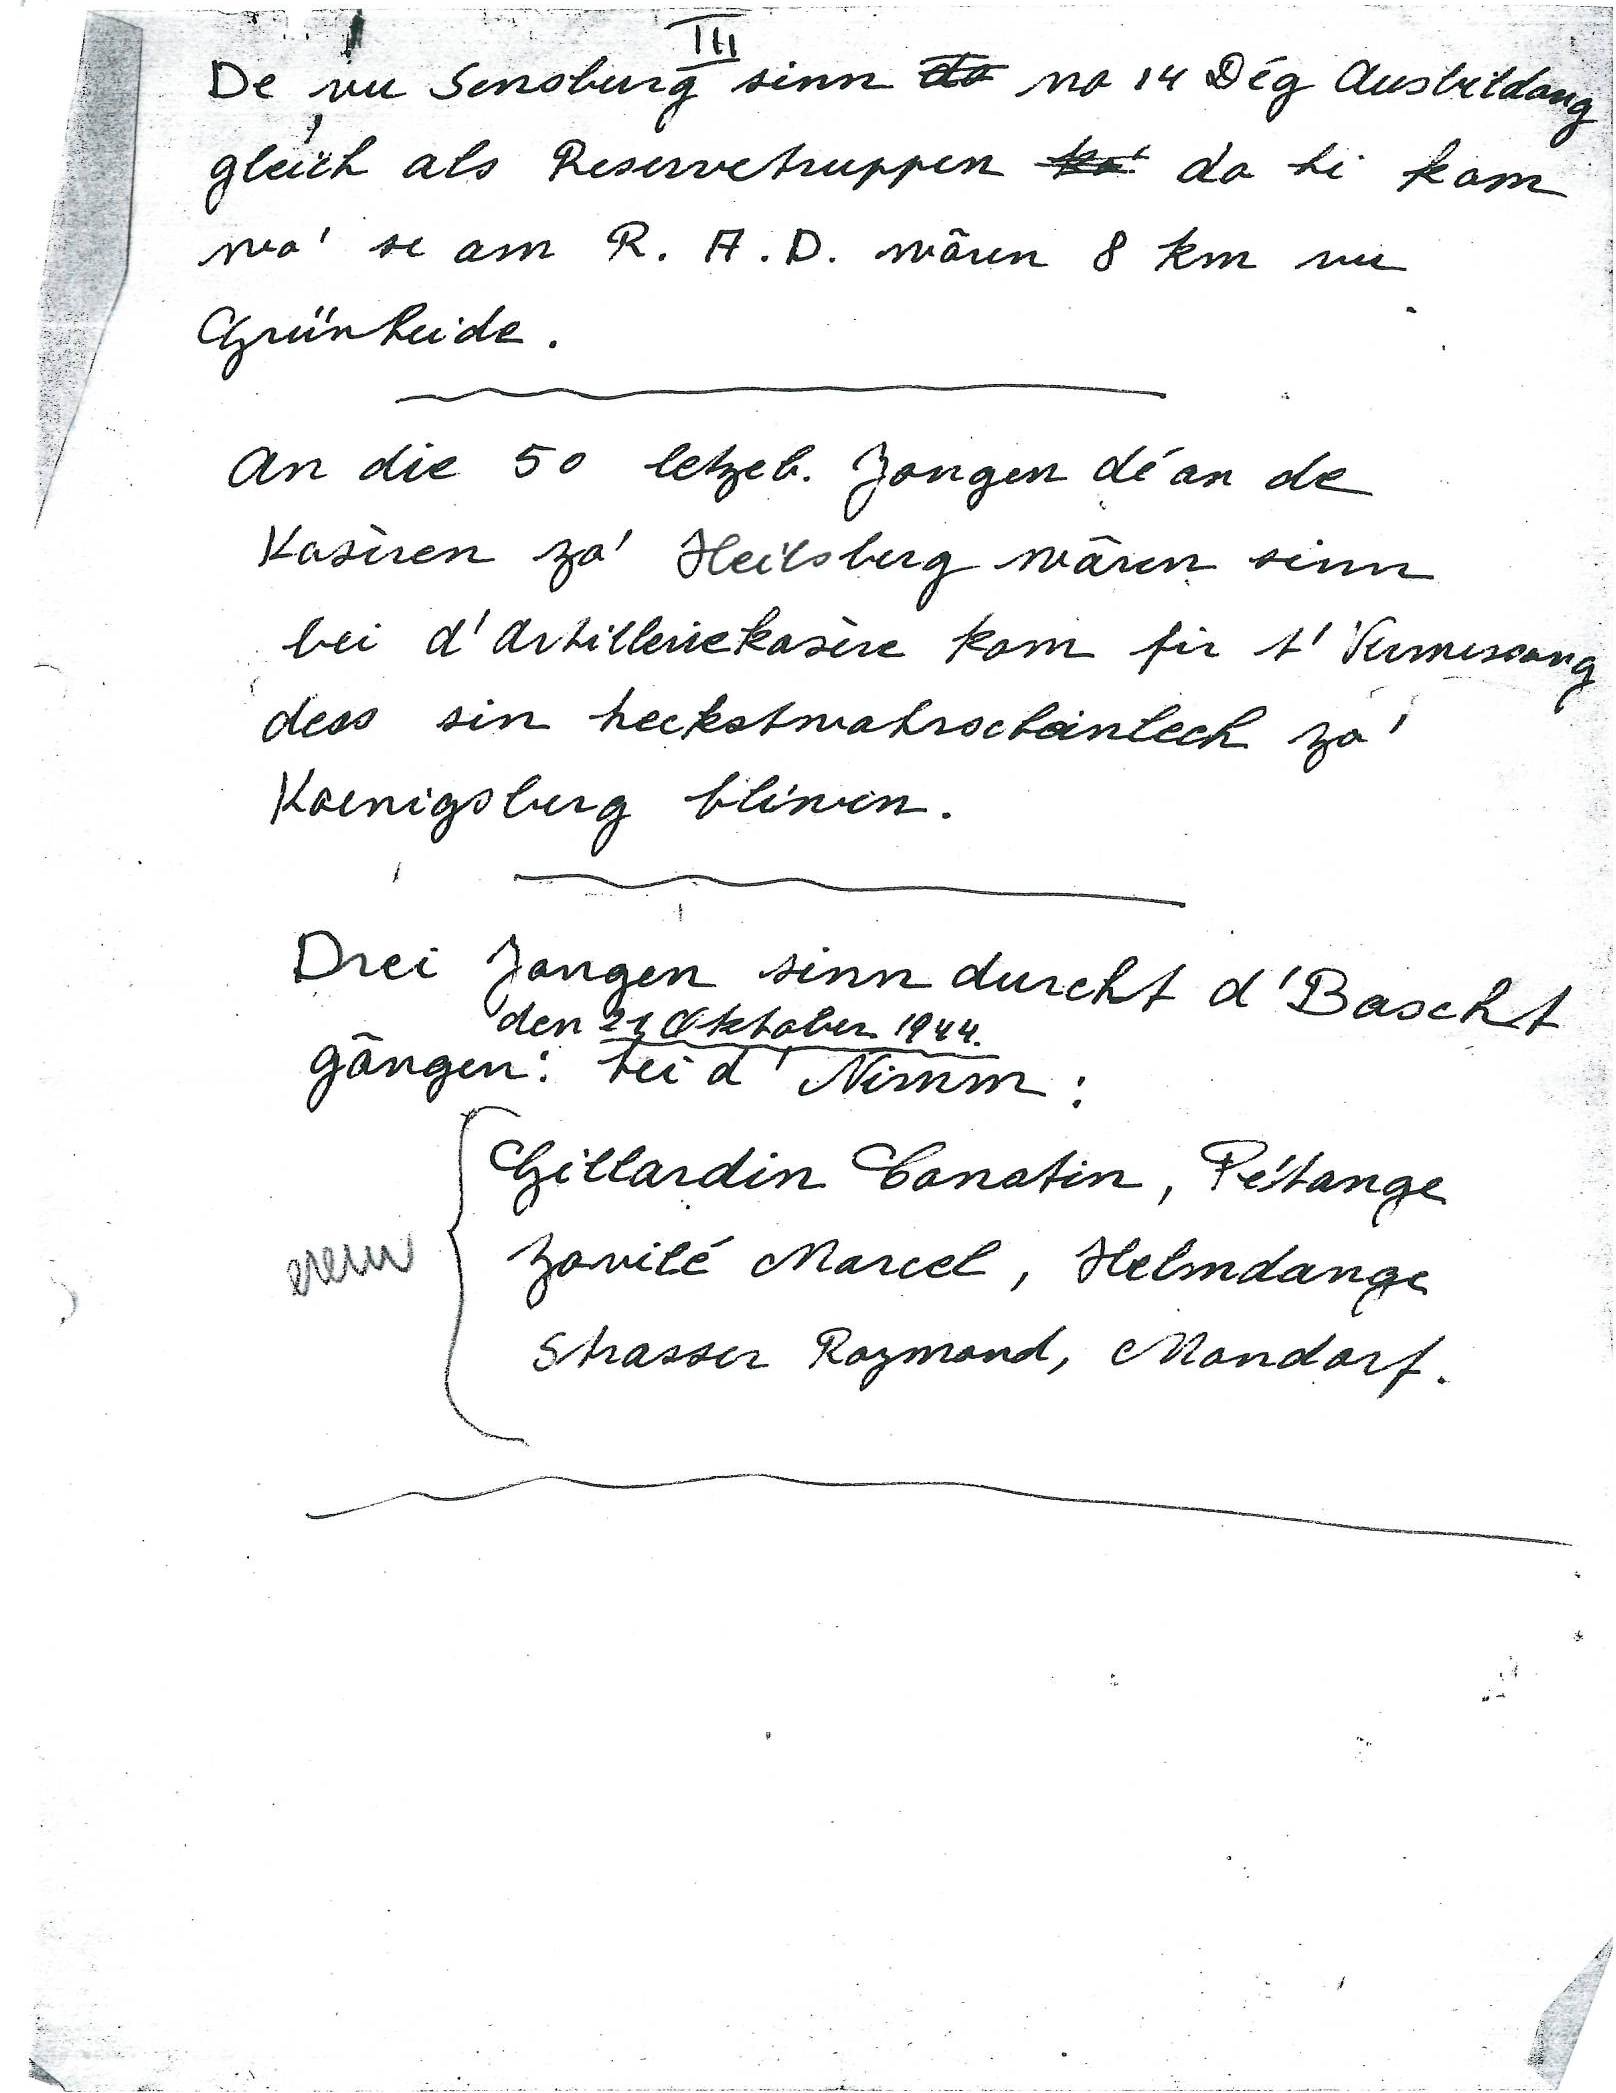 III
De vu Sensburg sinn da no 14 Dég Ausbildong
gleich als Reservetruppen ko' do hi kom
wo' se am R. A. D. wâren 8 km vu
Grünheide.
An die 50 letzeb. Jongen dé an de
Kasèren zo' Heilsberg wâren sinn
bei d'Artilleriekasère kom fir t'Vermessong
dess sin heckstwahrscheinlech zo'
Koenigsberg bliwen.
Drei Jongen sinn durcht d'Bascht
den 21 Oktober 1944.
gângen: hei d'Nimm:
Gillardin Constin, Pétange
Zovilé Marcel, Helmdange
Strasser Raymond, Mondorf.